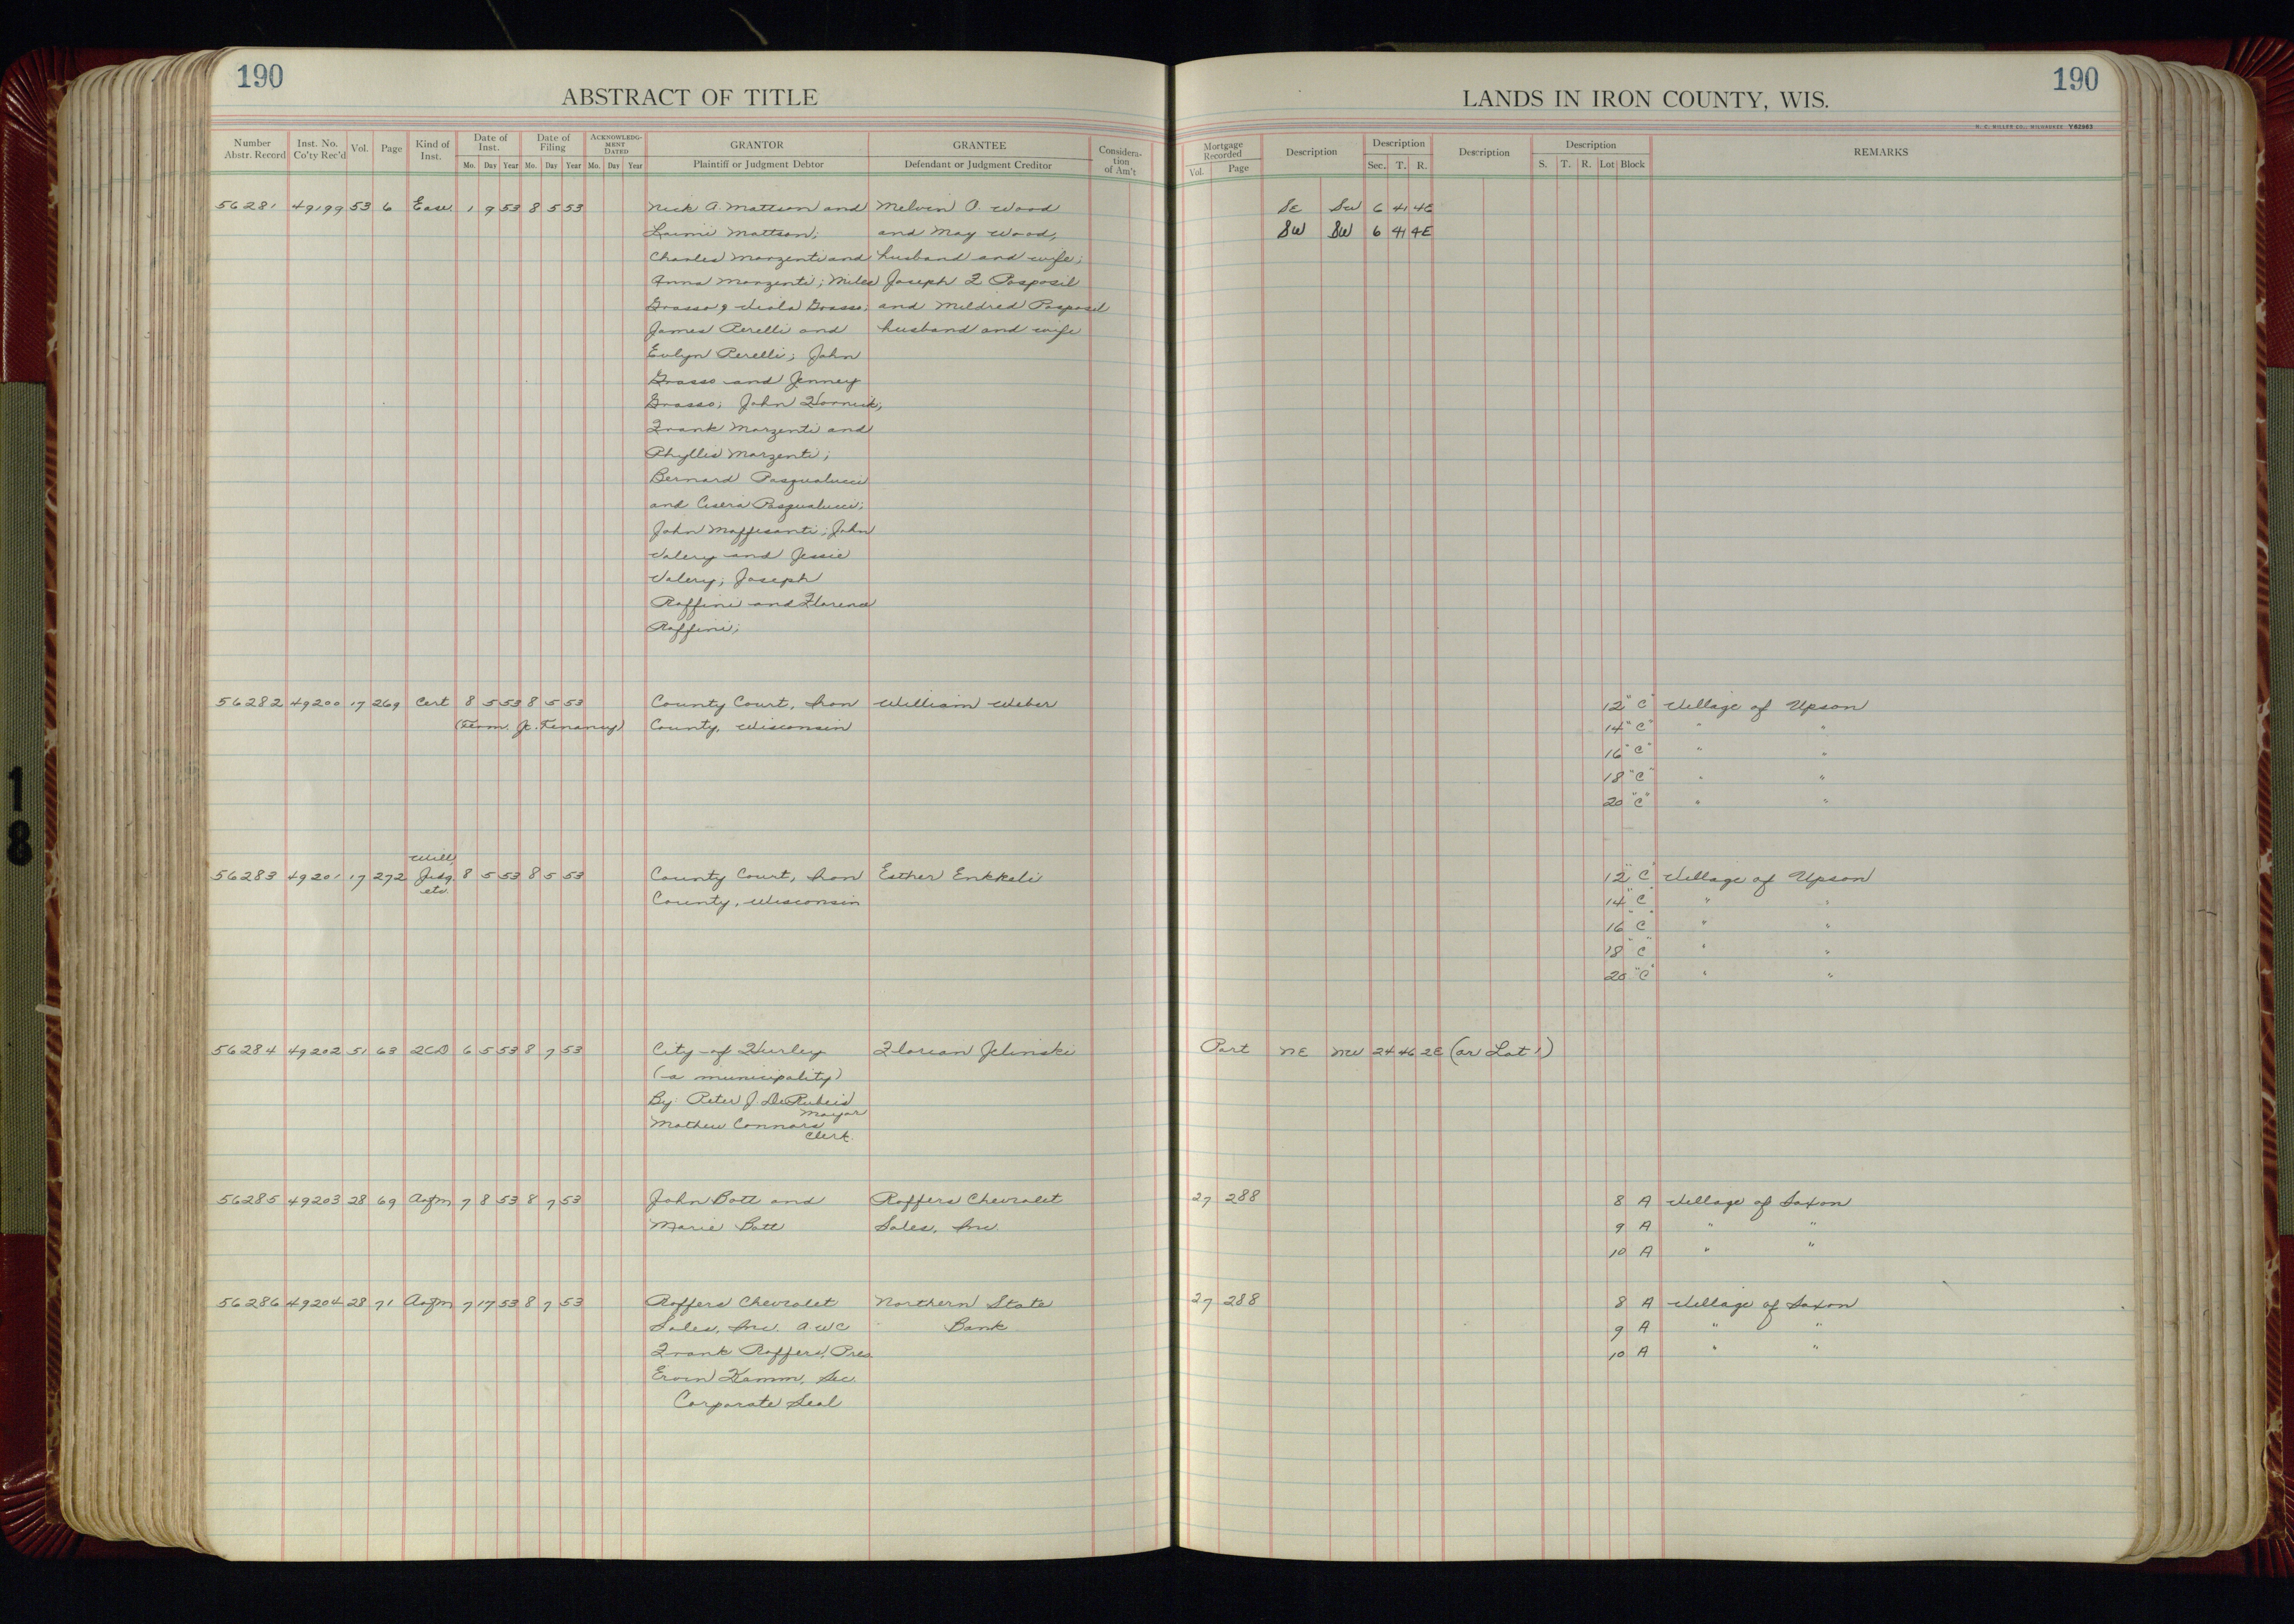 190
ABSTRACT OF TITLE
Number Abstr. Record Inst. No. Co'ty Rec'd Vol. Page Kind of Inst. Date of Inst. Mo. Day Year Date of Filing Mo. Day Year ACKNOWLEDG-MENT DATED Mo. Day Year GRANTOR Plaintiff or Judgment Debtor GRANTEE Defendant or Judgment Creditor Considera-tion of Am't
56281 49199 53 6 Ease. 1 9 53 8 5 53 Nick A. Mattson and Melvin O. Wood
Laimi Mattson; and May Wood,
Charles Marzenti and husband and wife;
Anna Marzenti; Miles Joseph F Posposil
Grasso & Viola Grasso; and Mildred Posposil
James Perelli and husband and wife
Evlyn Perelli; John
Grasso and Jenney
Grasso; John Hornick;
Frank Marzenti and
Phyllis Marzenti;
Bernard Pasqualucci
and Cisera Pasqualucci;
John Maffesanti; John
Valery and Jessie
Valery; Joseph
Raffini and Florence
Raffini;
56282 49200 17 269 Cert 8 5 53 8 5 53 County Court, Iron William Weber
(Term. Jt. Tenancy) County, Wisconsin
Will,
56283 49201 17 272 Judg 8 5 53 8 5 53 County Court, Iron Esther Enkkeli
etc. County, Wisconsin
56284 49202 51 63 2CD 6 5 53 8 7 53 City of Hurley Florian Jelinski
(a municipality)
By: Peter J. DeRubeis
Mayor
Mathew Connors
Clerk.
56285 49203 28 69 Asgm 7 8 53 8 7 53 John Bott and Roffers Chevrolet
Marie Bott Sales, Inc.
56286 49204 28 71 Asgm 7 17 53 8 7 53 Roffers Chevrolet Northern State
Sales, Inc. AWC Bank
Frank Roffers, Pres.
Ervin Kamm, Sec.
Corporate Seal
190
LANDS IN IRON COUNTY, WIS.
H. C. MILLER CO., MILWAUKEE Y62983
Mortgage Recorded Vol. Page Description Description Sec. T. R. Description Description S. T. R. Lot Block REMARKS
SE SW 6 41 4E
SW SW 6 41 4E
12 "C" Village of Upson
14 "C" " "
16 "C" " "
18 "C" " "
20 "C" " "
12 "C" Village of Upson
14 "C" " "
16 "C" " "
18 "C" " "
20 "C" " "
Part NE NW 24 46 2E (or Lot 1)
27 288 8 A Village of Saxon
9 A " "
10 A " "
27 288 8 A Village of Saxon
9 A " "
10 A " "
18